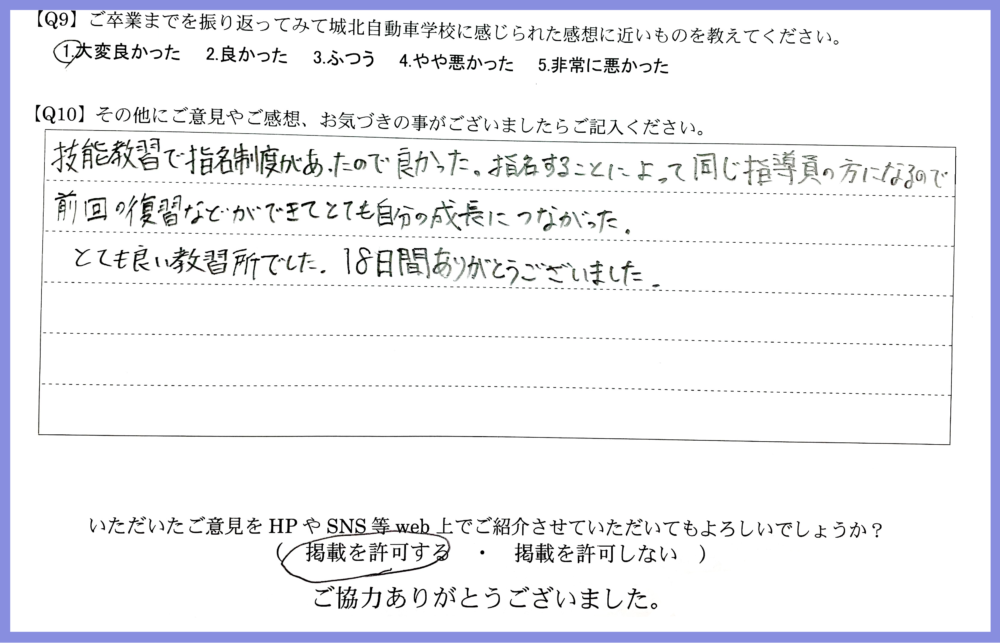 【Q9】ご卒業までを振り返ってみて城北自動車学校に感じられた感想に近いものを教えてください。
1.大変良かった 2.良かった 3.ふつう 4.やや悪かった 5.非常に悪かった
【Q10】その他にご意見やご感想、お気づきの事がございましたらご記入ください。
技能教習で指名制度があったので良かった。指名することによって同じ指導員の方になるので
前回の復習などができてとても自分の成長につながった。
とても良い教習所でした。18日間ありがとうございました。
いただいたご意見をHPやSNS等web上でご紹介させていただいてもよろしいでしょうか？
( 掲載を許可する ・ 掲載を許可しない )
ご協力ありがとうございました。